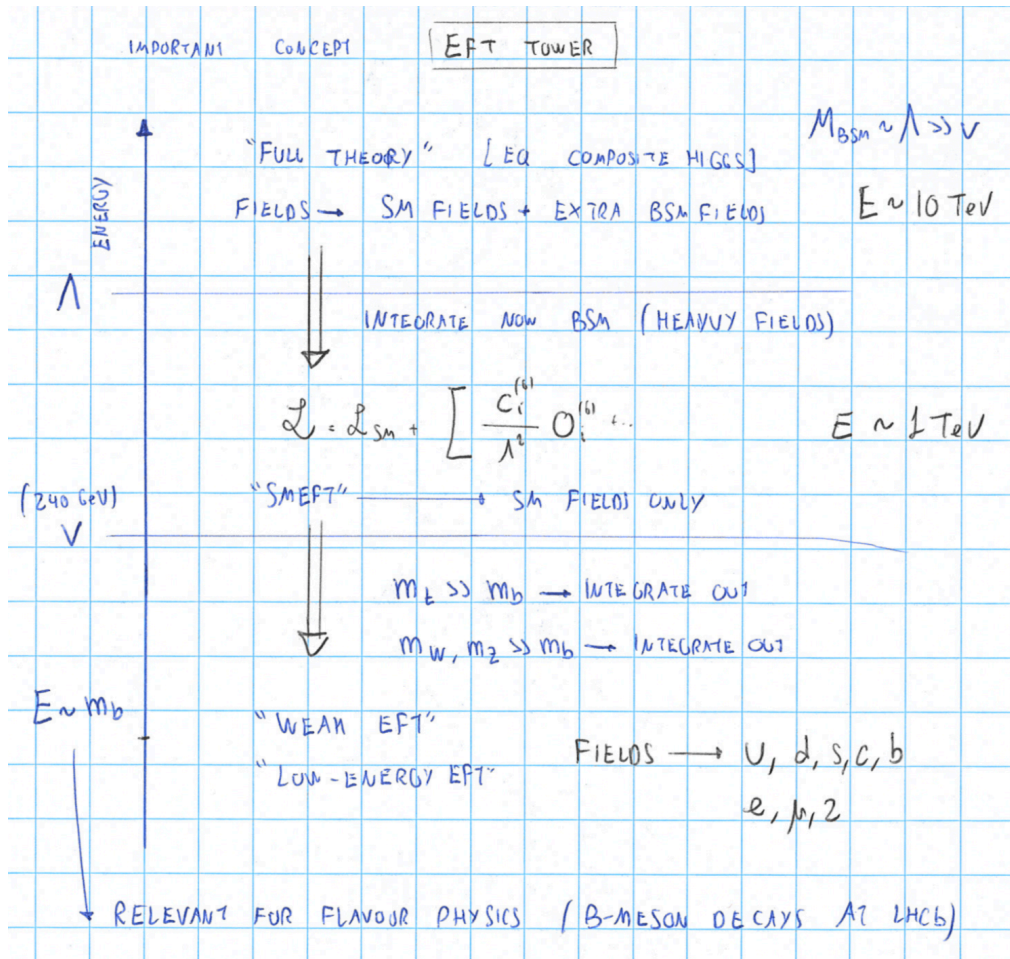 IMPORTANT CONCEPT EFT TOWER
M_BSM ~ Λ >> v
"FULL THEORY" [EG COMPOSITE HIGGS]
ENERGY
FIELDS → SM FIELDS + EXTRA BSM FIELDS E ~ 10 TeV
Λ
INTEGRATE NOW BSM (HEAVVY FIELDS)
ℒ = ℒ_SM + [ c_i^(6)/Λ² O_i^(6) + ... E ~ 1 TeV
(240 GeV) "SMEFT" → SM FIELDS ONLY
V
m_t >> m_b → INTEGRATE OUT
m_W, m_Z >> m_b → INTEGRATE OUT
E ~ m_b
"WEAK EFT"
FIELDS → U, d, s, c, b
"LOW-ENERGY EFT"
e, μ, τ
RELEVANT FOR FLAVOUR PHYSICS (B-MESON DECAYS AT LHCb)